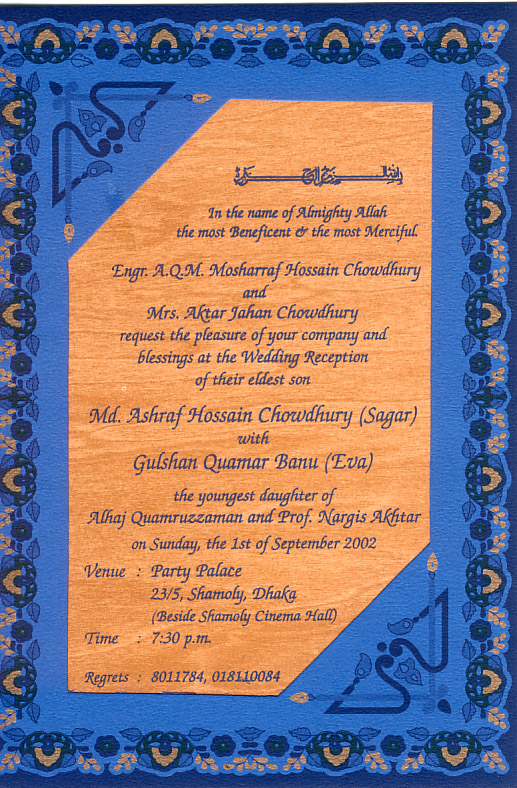 In the name of Almighty Allah
the most Beneficent & the most Merciful.
Engr. A.Q.M. Mosharraf Hossain Chowdhury
and
Mrs. Aktar Jahan Chowdhury
request the pleasure of your company and
blessings at the Wedding Reception
of their eldest son
Md. Ashraf Hossain Chowdhury (Sagar)
with
Gulshan Quamar Banu (Eva)
the youngest daughter of
Alhaj Quamruzzaman and Prof. Nargis Akhtar
on Sunday, the 1st of September 2002
Venue : Party Palace
23/5, Shamoly, Dhaka
(Beside Shamoly Cinema Hall)
Time : 7:30 p.m.
Regrets : 8011784, 018110084